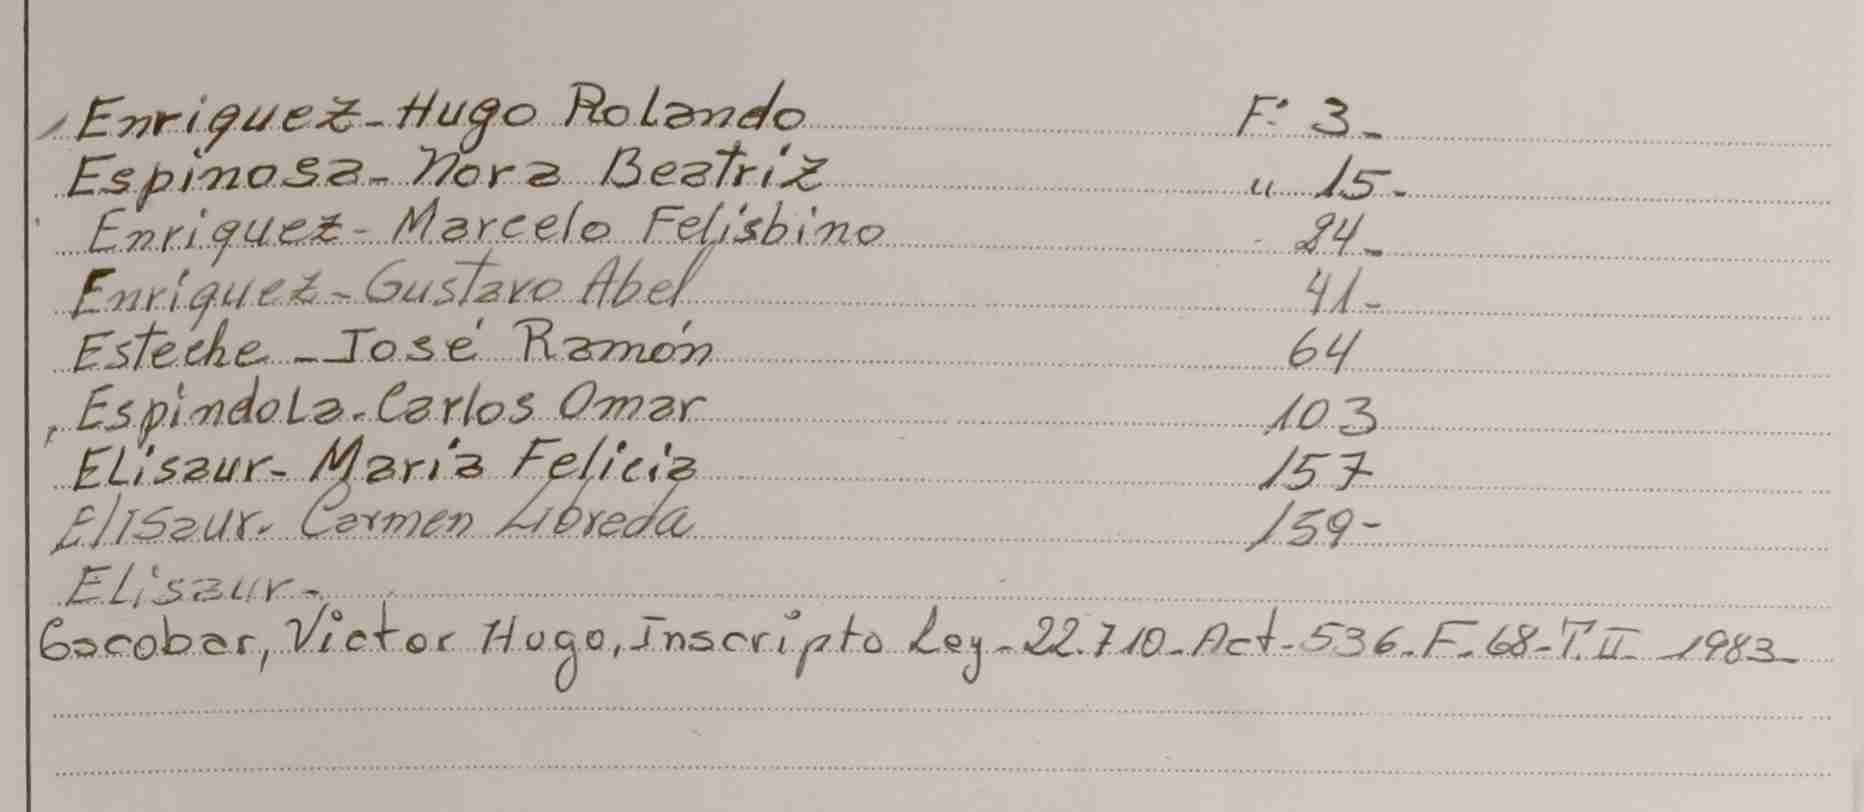 Enriquez - Hugo Rolando F: 3 -
Espinosa - Nora Beatriz " 15 -
Enriquez - Marcelo Felisbino 24 -
Enriquez - Gustavo Abel 41 -
Esteche - José Ramón 64
Espindola - Carlos Omar 103
Elisaur - María Felicia 157
Elisaur - Carmen Libreda 159 -
Elisaur -
Escobar, Victor Hugo, Inscripto Ley - 22.710 - Act - 536 - F - 68 - T. II - 1983 -